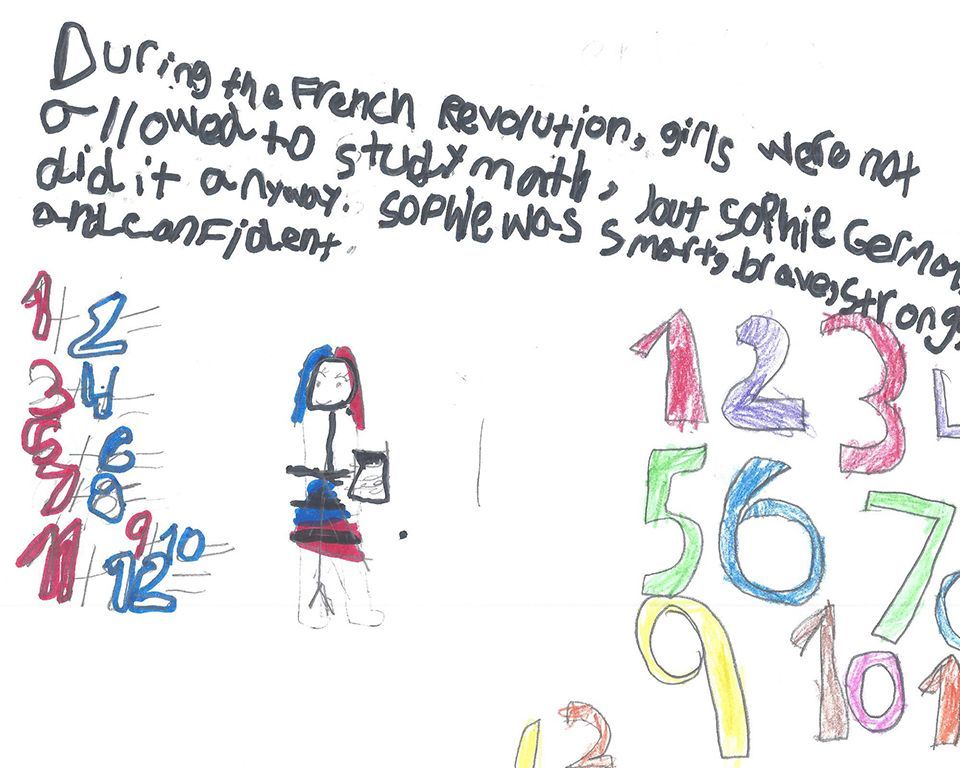 During the French Revolution, girls were not
allowed to study math, but Sophie German
did it anyway. Sophie was smart, brave, strong,
and confident.
1 2
3 4
5 6
7 8
9 10
11 12
1 2 3
5 6 7
9 10 1
12